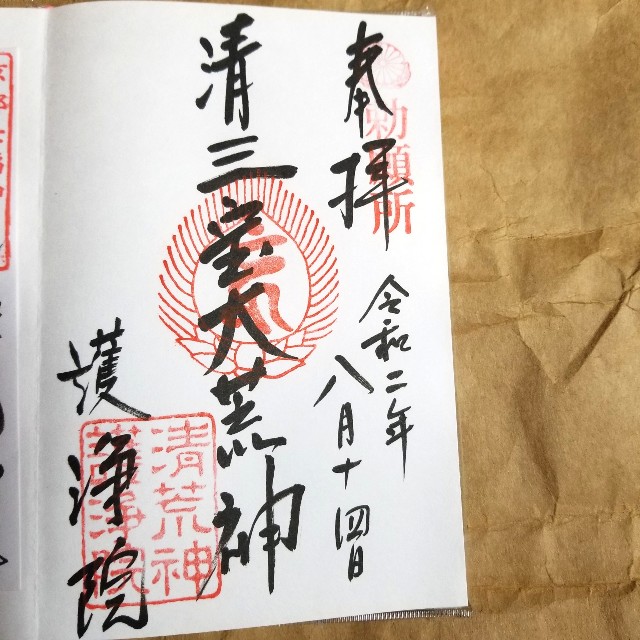 奉拝
勅願所
令和二年
八月十四日
清三宝大荒神
護浄院
清荒神
護浄院